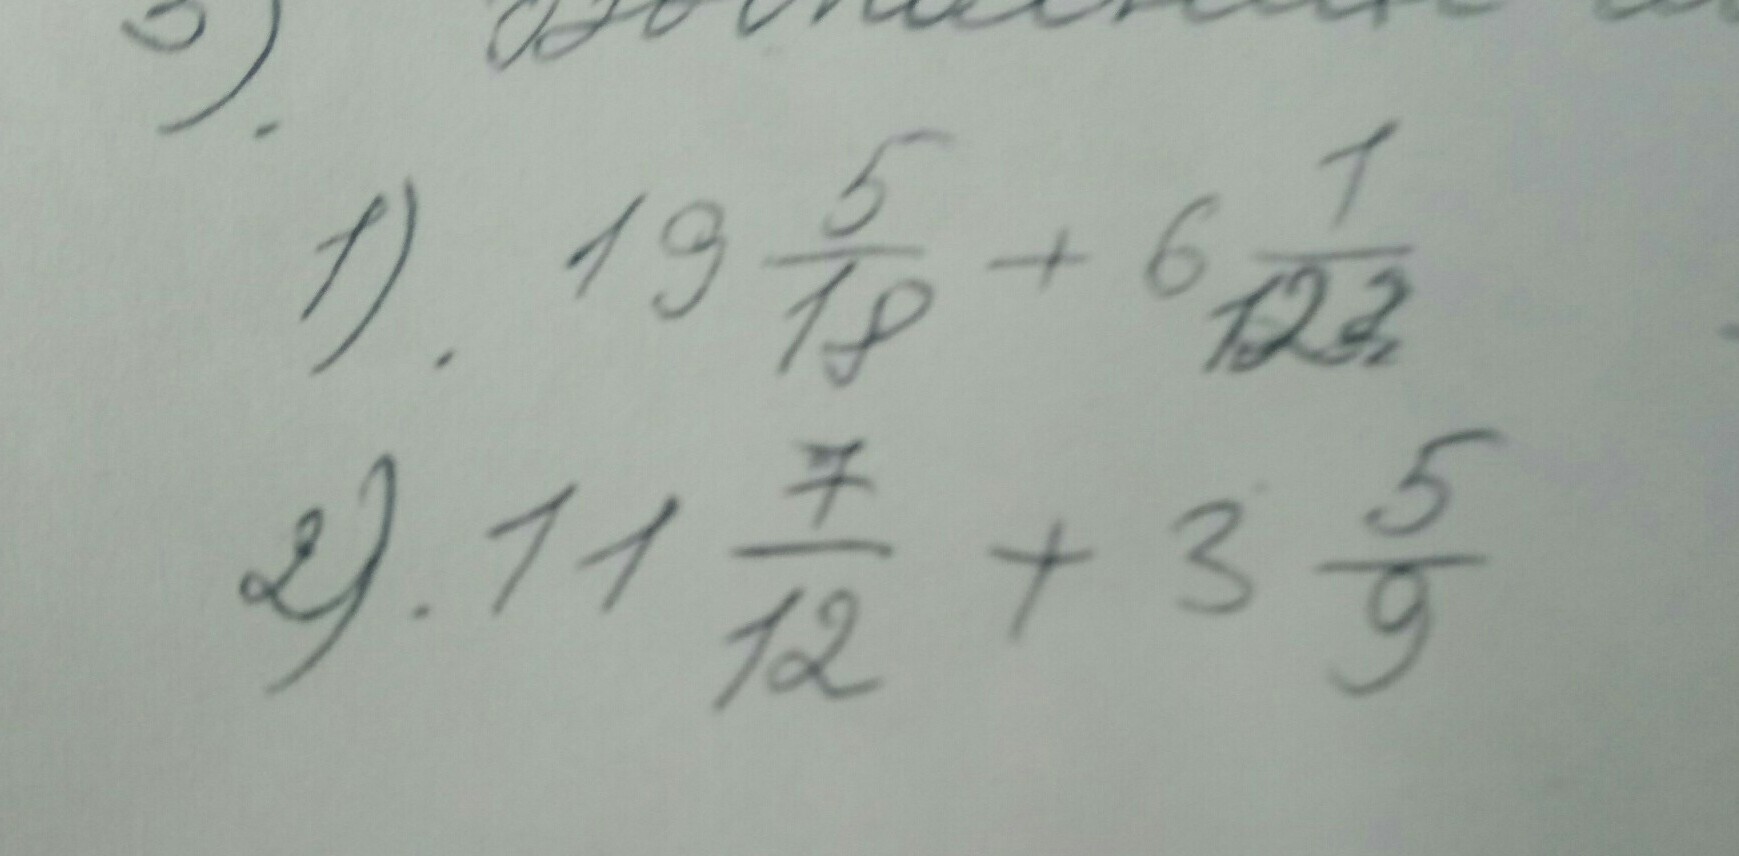 3).
1). 19 5/18 + 6 1/12
2). 11 7/12 + 3 5/9